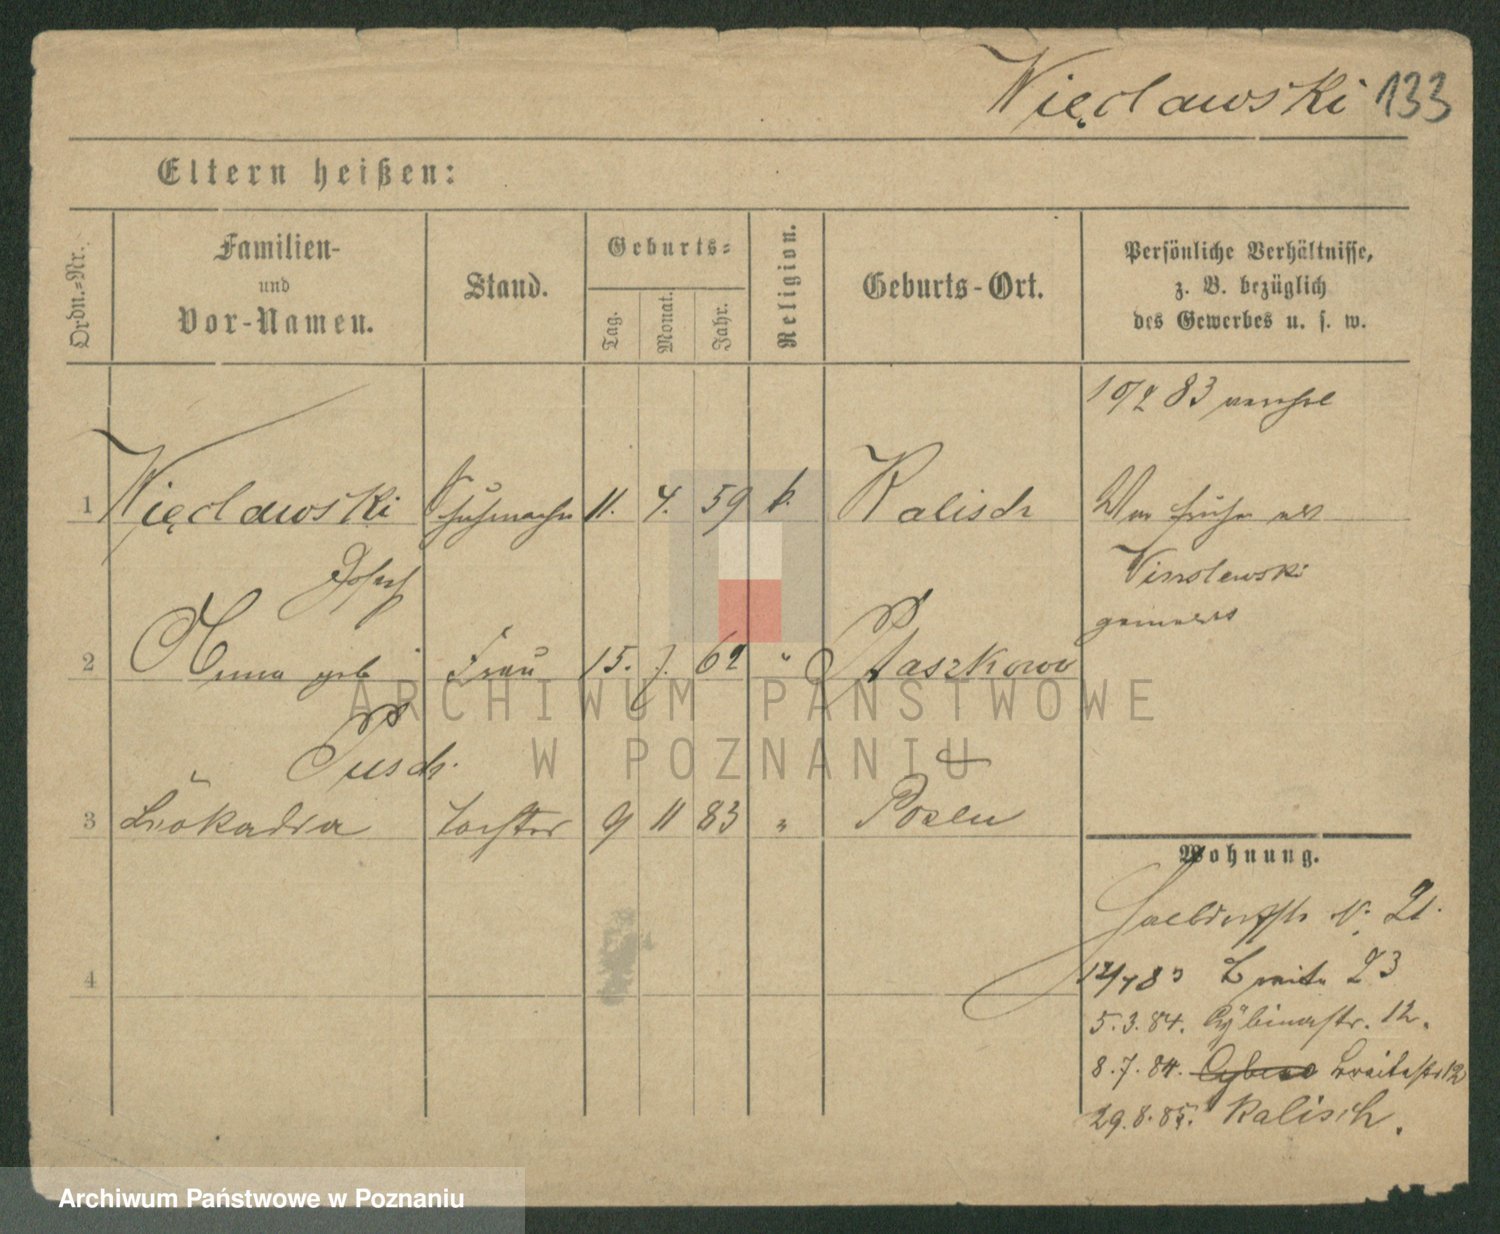 Więcławski 133
Eltern heißen:
Ordn.-Nr.
Familien-
und
Vor-Namen.
Stand.
Geburts-
Tag.
Monat.
Jahr.
Religion.
Geburts-Ort.
Persönliche Verhältnisse,
z. B. bezüglich
des Gewerbes u. s. w.
10/2 83
1 Więcławski Schuhmacher 11. 4. 59 k. Kalisch
Josef
War früher als
Vinslewski
gemeldet
2 Anna geb. Frau 15. 7. 62 " Staszkowo
Pusch.
3 Leokadia Tochter 9 11 83 " Posen
4
Wohnung.
Halbdorfstr N. 21.
12/4 83 Breite 23
5.3.84. Cybinastr. 12.
8.7.84. Breitestr 12
29.8.85. Kalisch.
ARCHIWUM PAŃSTWOWE
W POZNANIU
Archiwum Państwowe w Poznaniu